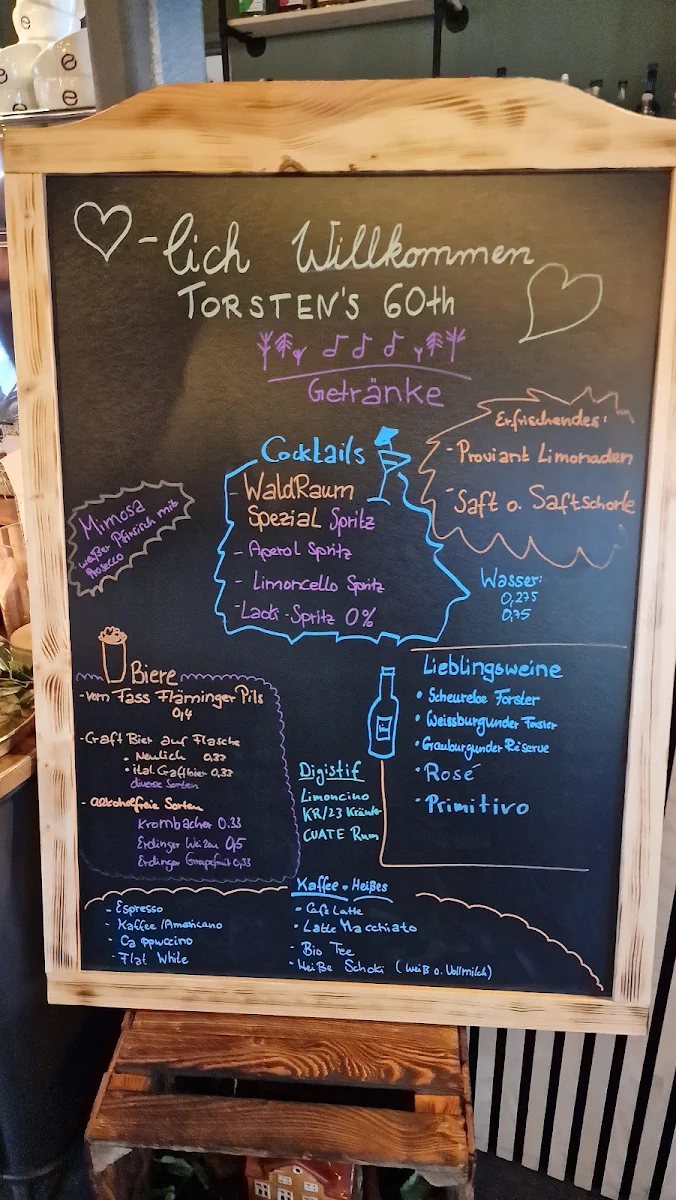 -lich Willkommen
TORSTEN'S 60th
Getränke
Erfrischendes:
- Proviant Limonaden
- Saft o. Saftschorle
Cocktails
- WaldRaum
Spezial Spritz
- Aperol Spritz
- Limoncello Spritz
- Spritz 0%
Mimosa
weißer Pfirsich mit
Prosecco
Wasser:
0,275
0,75
Biere
- vom Fass Fläminger Pils
0,4
- Craft Bier auf Flasche
• Neulich 0,33
• ital. Craftbier 0,33
diverse Sorten
- alkoholfreie Sorten
Krombacher 0.33
Erdinger Weizen 0,5
Erdinger Grapefruit 0,33
Lieblingsweine
• Scheurebe Forster
• Weissburgunder Forster
• Grauburgunder Réserve
• Rosé
• Primitivo
Digistif
Limoncino
KR/23 Kräuter
CUATE Rum
Kaffee • Heißes
- Espresso
- Kaffee/Americano
- Cappuccino
- Flat White
- Cafe Latte
• Latte Macchiato
- Bio Tee
- Heiße Schoki (weiß o. Vollmilch)